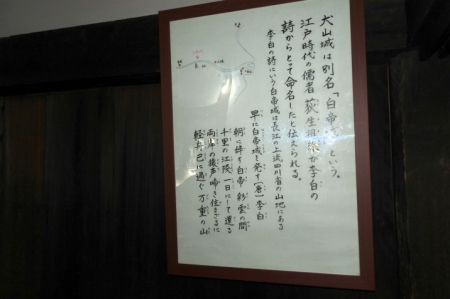 犬山城は別名「白帝城」という。
江戸時代の儒者 荻生徂徠が李白の
詩からとって命名したと伝えられる。
李白の詩にいう白帝城は長江の上流四川省の山地にある
早に白帝城を発す〔唐〕李白
朝に辞す 白帝 彩雲の間
千里の江陵 一日にして還る
両岸の猿声 啼き住まざるに
軽舟 已に過ぐ 万重の山